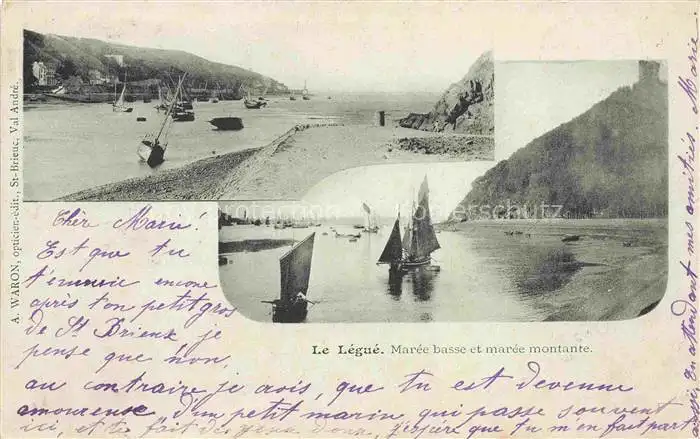 A. WARON, opticien-édit., St-Brieuc, Val André.
Le Légué. Marée basse et marée montante.
Chèr Marie!
Est que tu
t'ennuie encore
après ton petit gros
de St Brieux je
pense que non.
au contraire je crois, que tu est devenue
amoureuse d'un petit marin qui passe souvent
ici, et te fait de yeux doux, j'espére que tu m'en fait part
en attendent mes amitiés Marie